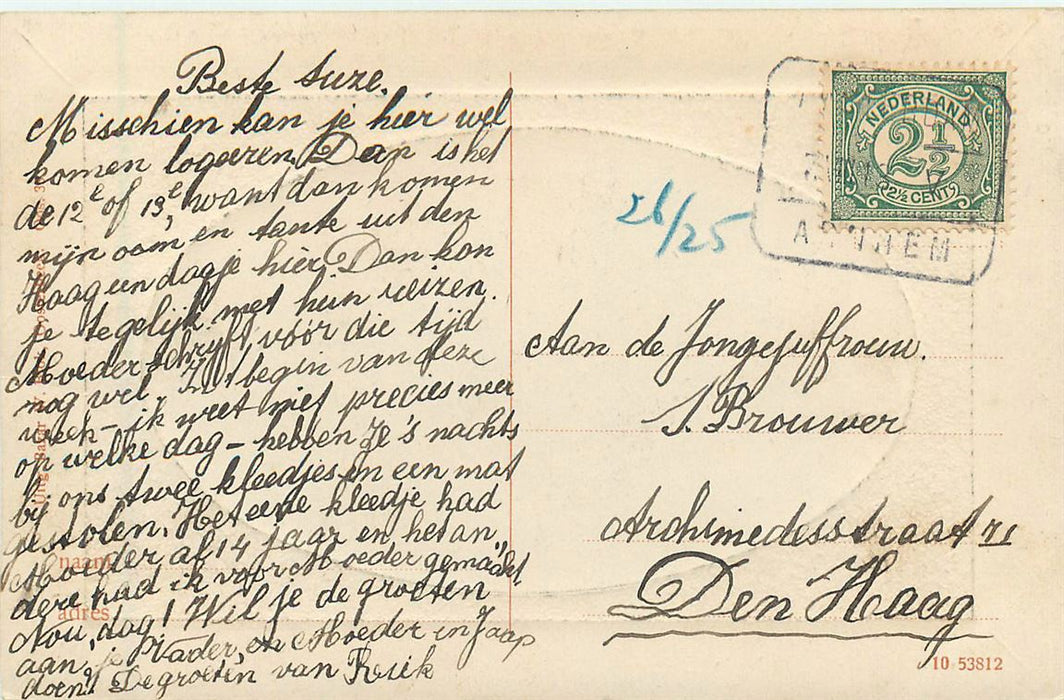 Beste Suze.
Misschien kan je hier wel
komen logeeren. Dan is het
de 12e of 13e, want dan komen
mijn oom en tante uit den
Haag een dagje hier. Dan kon
je tegelijk met hun reizen.
Moeder schrijft vóór die tijd
nog wel. In 't begin van deze
week – ik weet niet precies meer
op welke dag – hebben ze 's nachts
bij ons twee kleedjes en een mat
gestolen. Het eene kleedje had
Moeder al 14 jaar en het an„
dere had ik voor Moeder gemaakt.
Nou, dag! Wil je de groeten
aan je Vader, en Moeder en Jaap
doen? De groeten van Riek
naam
adres
NEDERLAND
2 1/2
2½ CENT
ARNHEM
26/25
Aan de Jongejuffrouw.
S. Brouwer
Archimedesstraat 71
Den Haag
10 53812